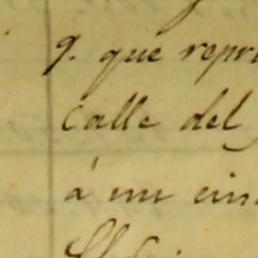 q. que repr
calle del
á un ein